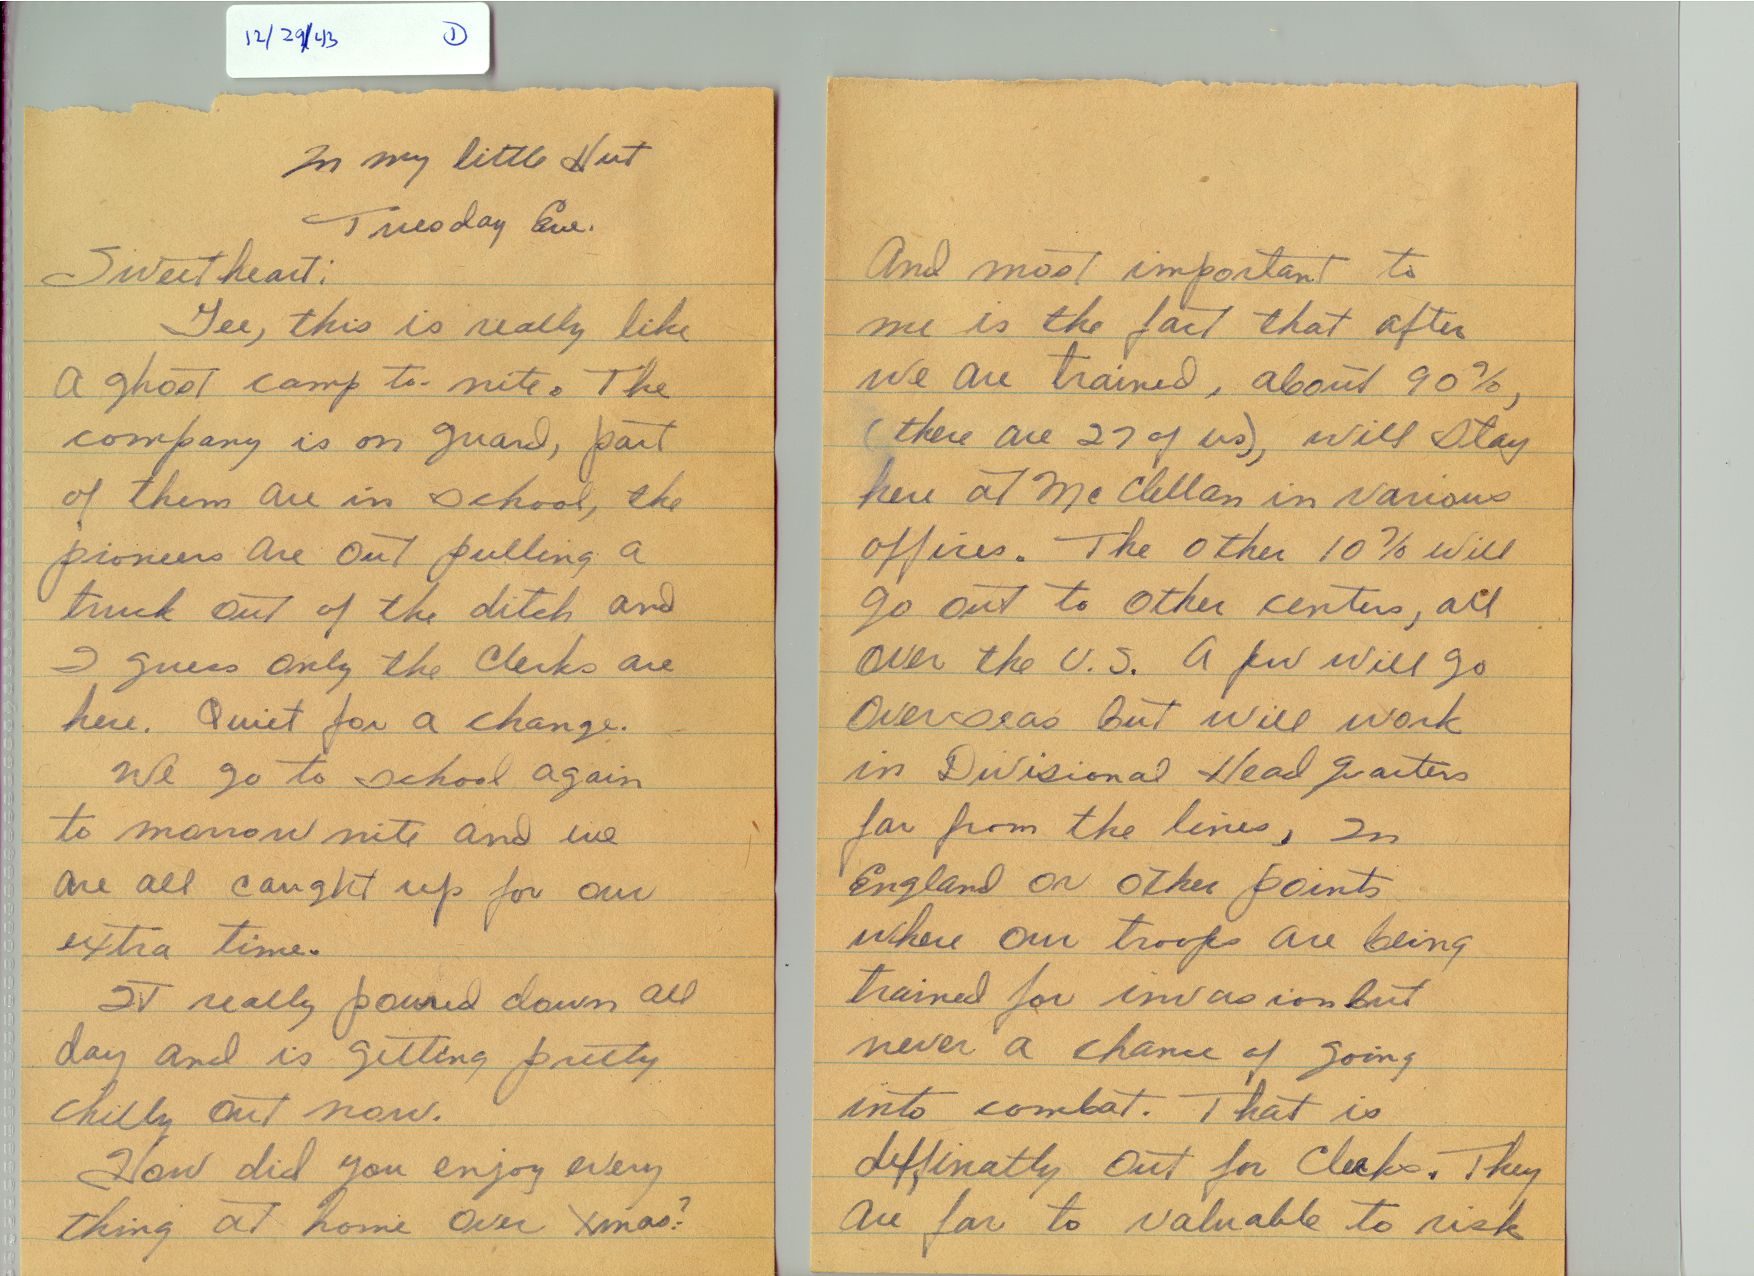 12/29/43 1
In my little Hut
Tuesday Eve.
Sweetheart:
Gee, this is really like
a ghost camp to-nite. The
company is on guard, part
of them are in school, the
pioneers are out pulling a
truck out of the ditch and
I guess only the Clerks are
here. Quiet for a change.
We go to school again
to morrow nite and we
are all caught up for our
extra time.
It really poured down all
day and is getting pretty
chilly out now.
How did you enjoy every
thing at home over Xmas?
And most important to
me is the fact that after
we are trained, about 90%,
(there are 27 of us), will stay
here at McClellan in various
offices. The other 10% will
go out to other centers, all
over the U.S. A few will go
overseas but will work
in Divisional Head Quarters
far from the lines, In
England or other points
where our troops are being
trained for invasion but
never a chance of going
into combat. That is
deffinatly out for Clerks. They
are far to valuable to risk